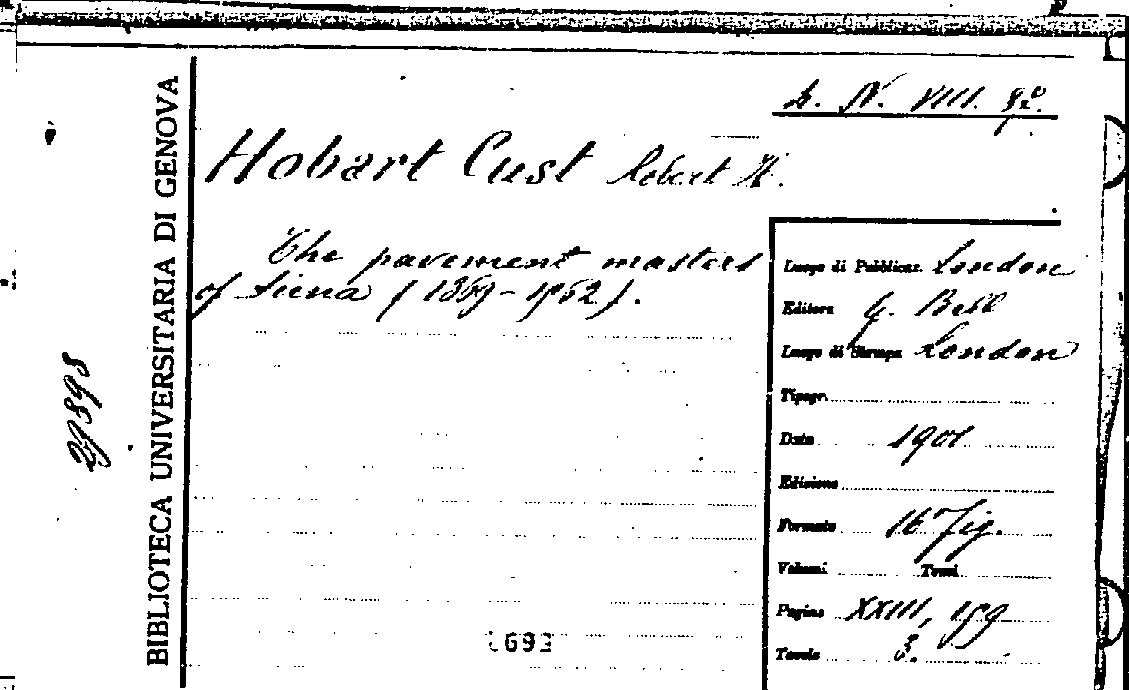 4. N. VIII. 92.
Hobart Cust Robert H.
The pavement masters
of Siena (1369-1562).
Luogo di Pubblicaz. London
Editore G. Bell
Luogo di Stampa London
Tipogr.
Data 1901
Edizione
Formato 16° fig.
Volumi Tomi
Pagine XXIII, 159
Tavole 3.
BIBLIOTECA UNIVERSITARIA DI GENOVA
29898
1693